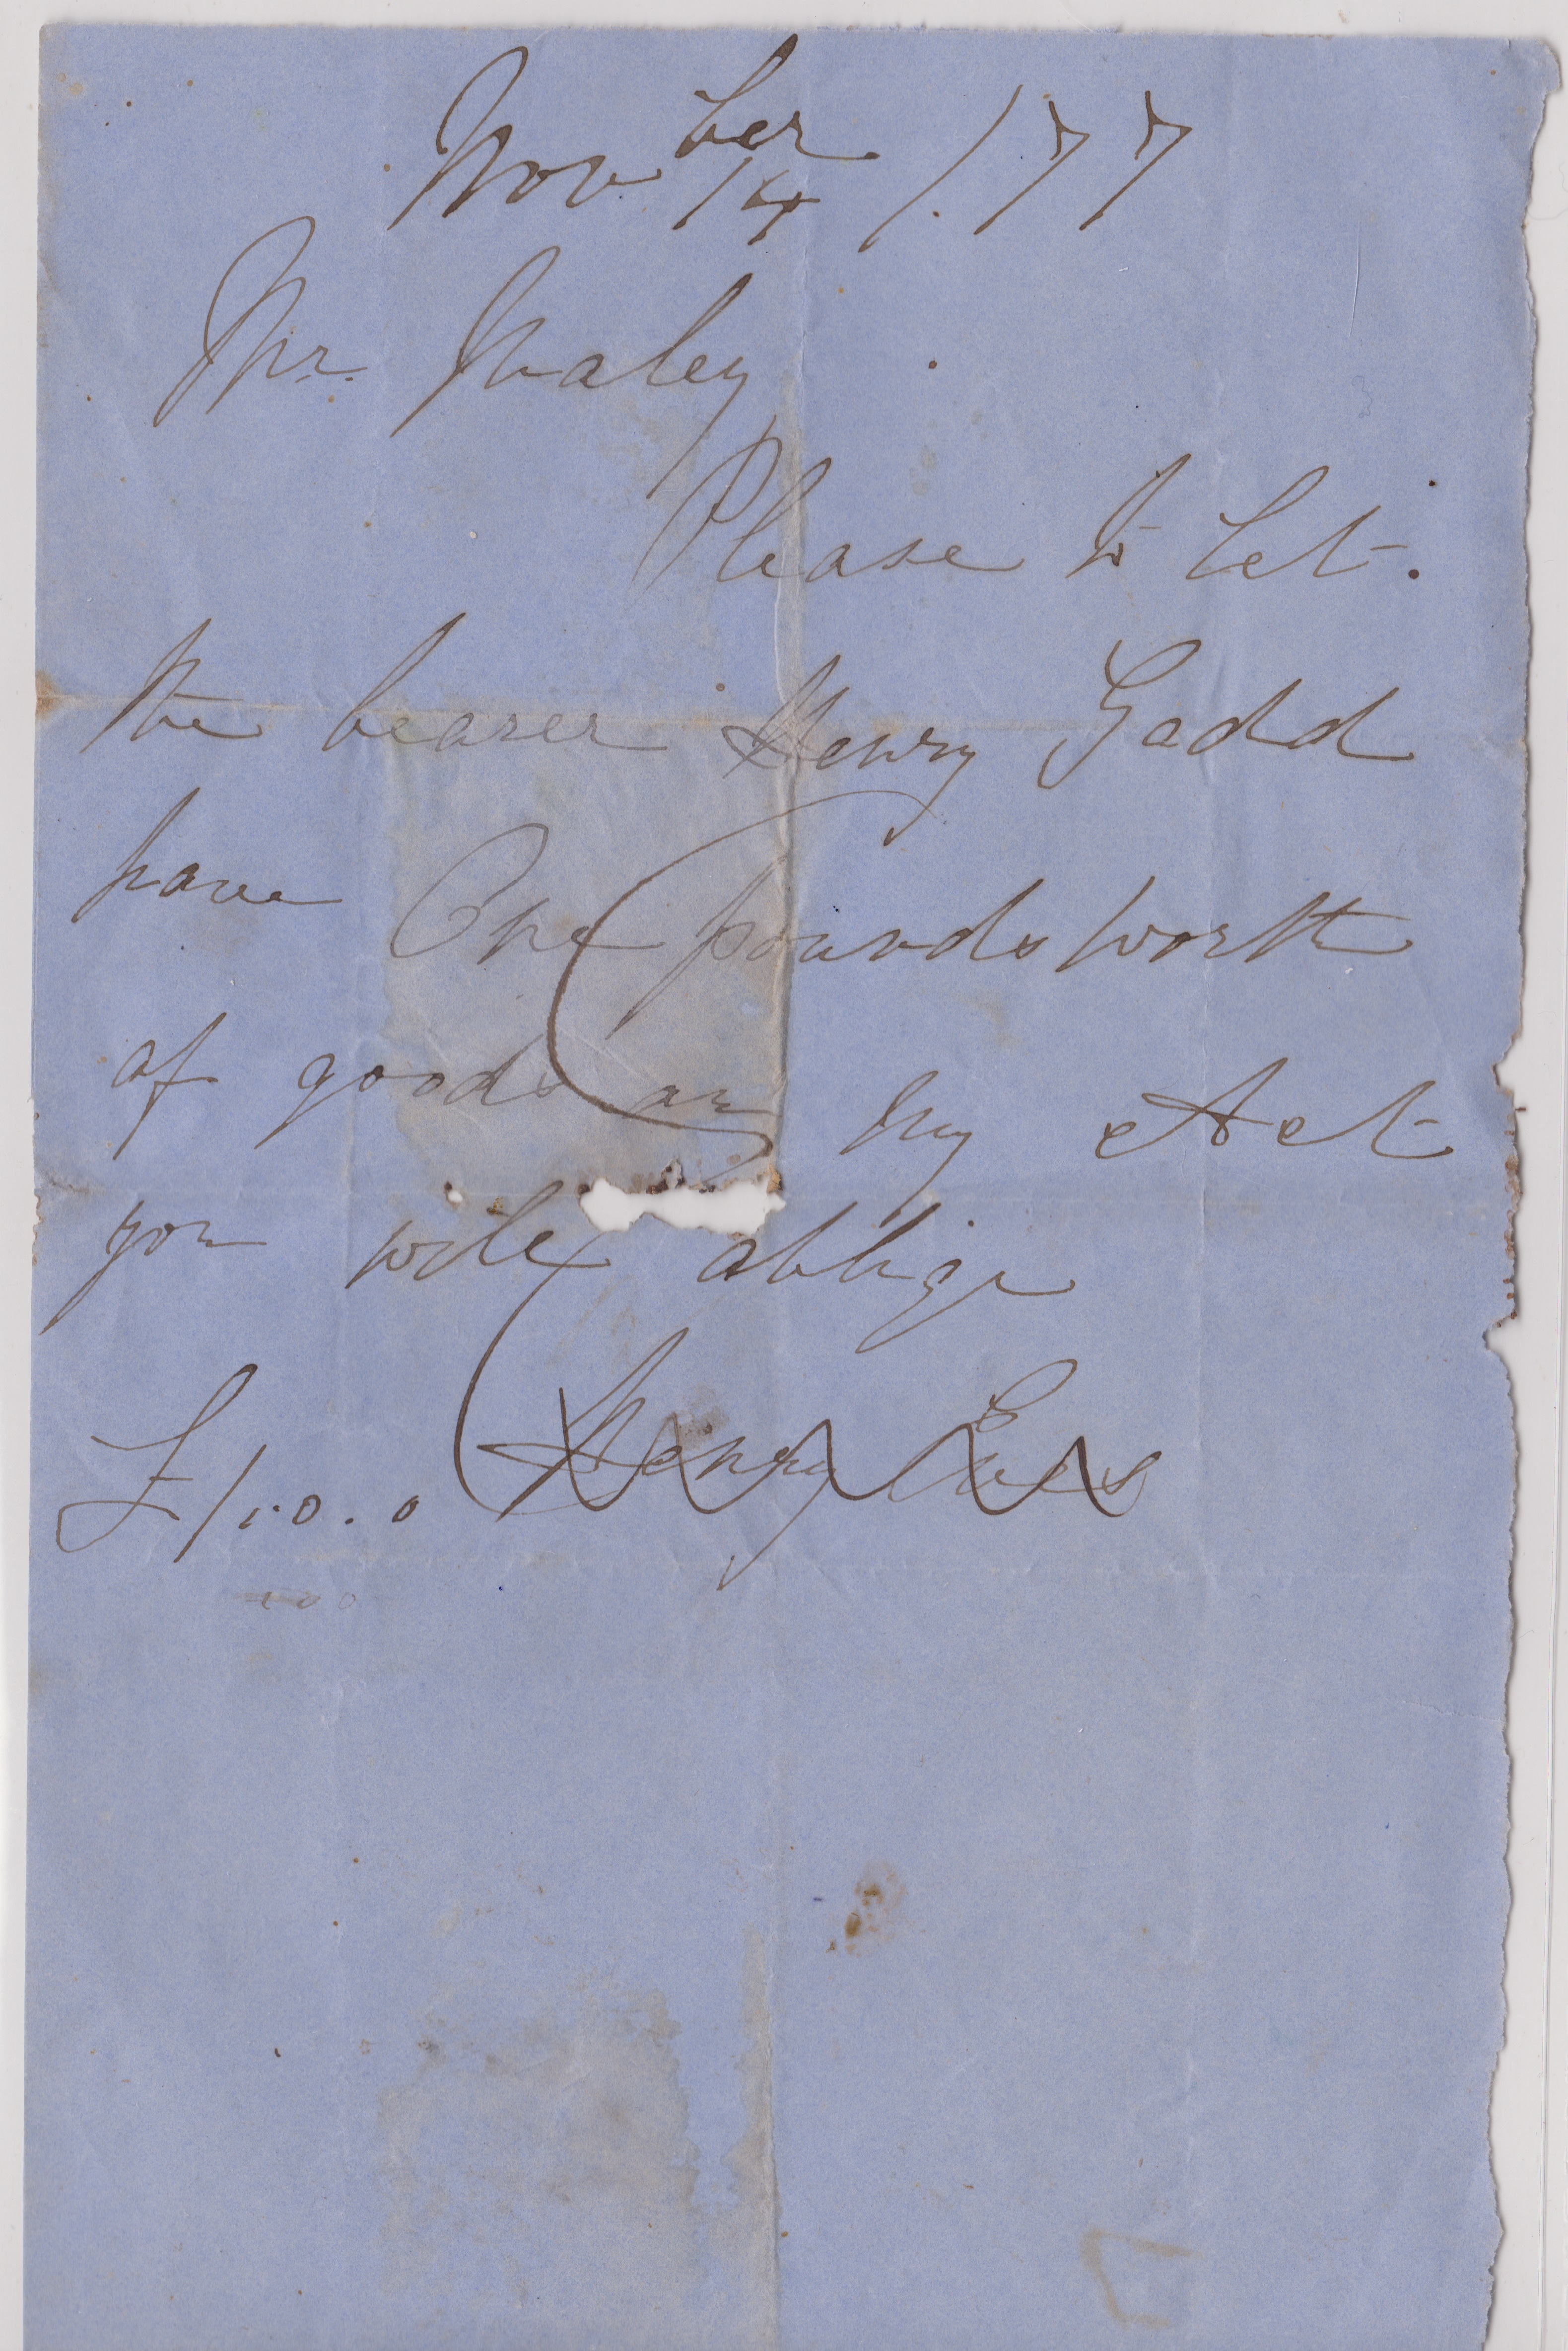 Novber 14 / 77
Mr. Maley
Please to let.
the bearer Henry Gadd
have One pounds worth
of goods on my Act
you will oblige
£1.0.0 Henry